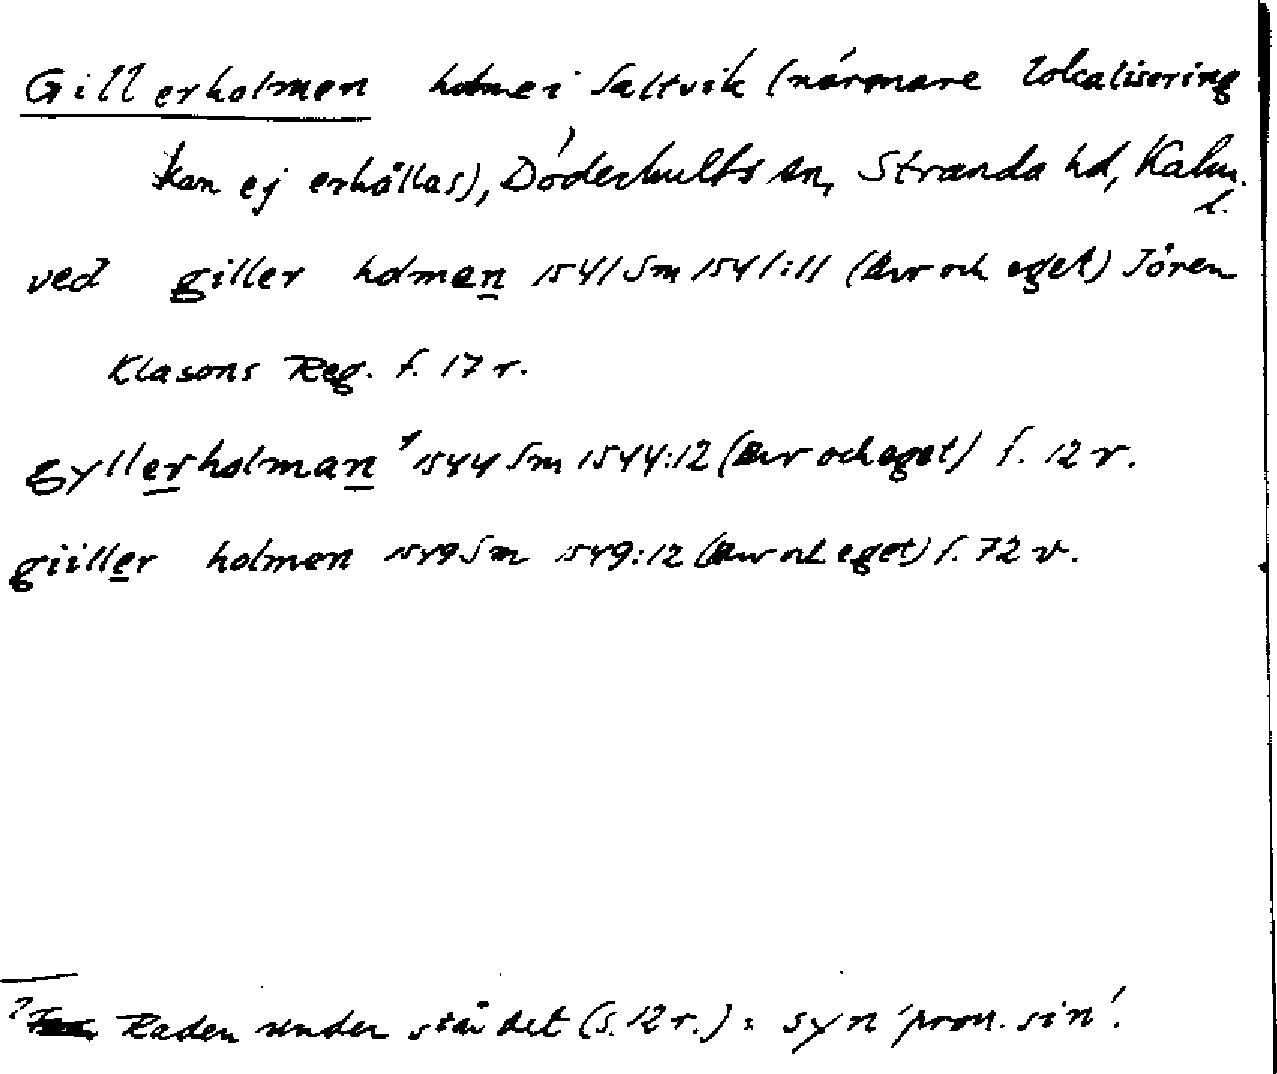 Gillerholmen holme i Saltvik (närmare lokalisering
kan ej erhållas), Döderhults sn, Stranda hd, Kalm.
l.
ved giller holmen 1541 Sm 1541:11 (Avr och eget) Jören
Klasons Reg. f. 17 r.
gyllerholman 1 1544 Sm 1544:12 (Avr och eget) f. 12 r.
giiller holmen 1549 Sm 1549:12 (Avr och eget) f. 72 v.
1 Raden under står det (f. 12 r.): syn 'pron. sin'.